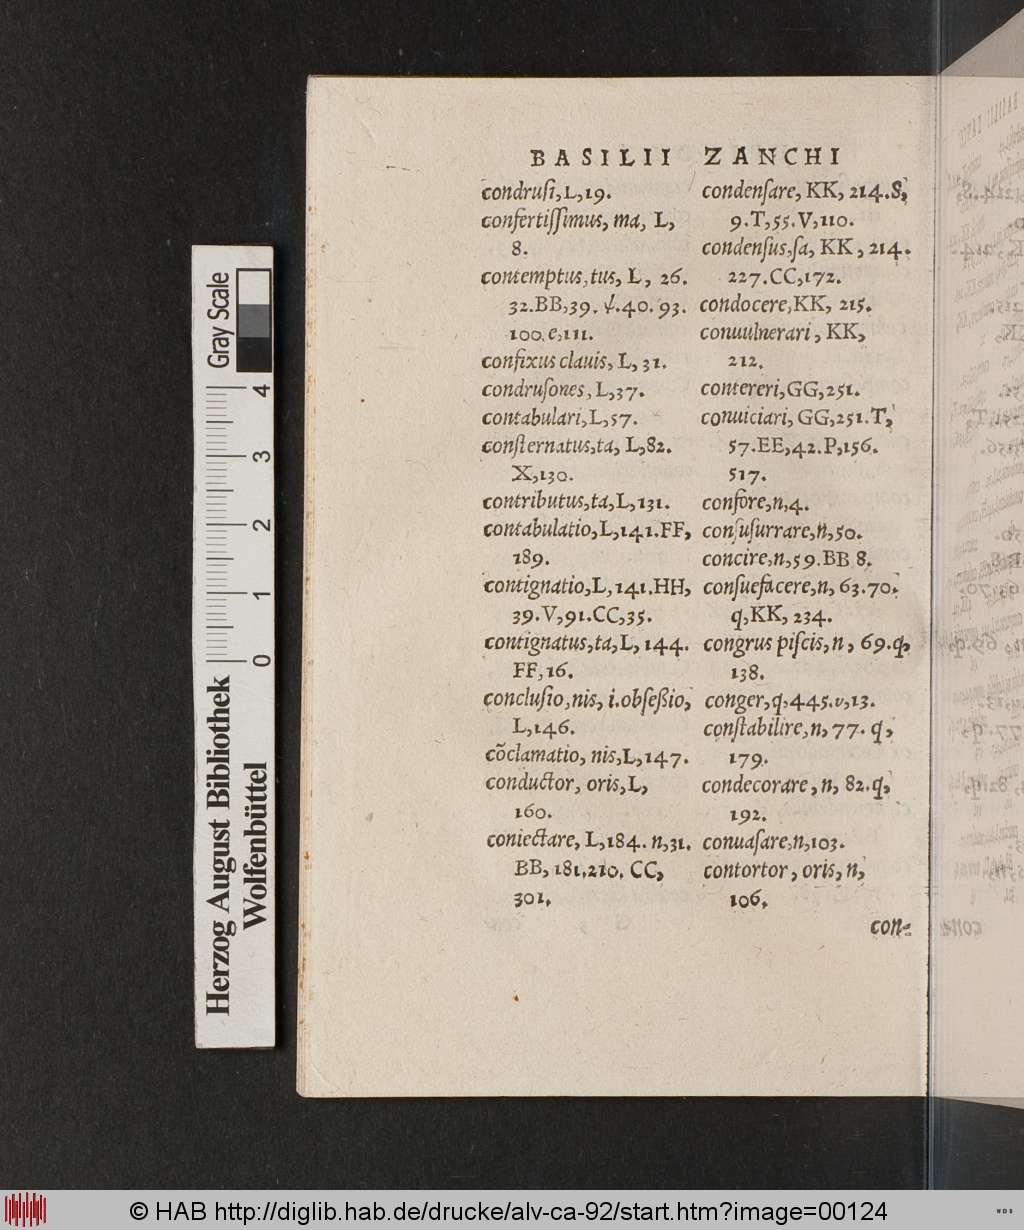 BASILII ZANCHI
condruſi,L,19.
confertiſſimus, ma, L,
8.
contemptus,tus, L, 26.
32.BB,39. ψ.40. 93.
100.e,111.
confixus clauis, L, 31.
condruſones, L,37.
contabulari,L,57.
conſternatus,ta, L,82.
X,130.
contributus,ta,L,131.
contabulatio,L,141.FF,
189.
contignatio,L,141.HH,
39.V,91.CC,35.
contignatus,ta,L, 144.
FF,16.
concluſio,nis, i.obſeßio,
L,146.
cõclamatio, nis,L,147.
conductor, oris,L,
160.
coniectare, L,184. n,31.
BB, 181,210. CC,
301.
condenſare, KK, 214.S,
9.T,55.V,110.
condenſus,ſa, KK, 214.
227.CC,172.
condocere,KK, 215.
conuulnerari, KK,
212.
contereri,GG,251.
conuiciari, GG,251.T,
57.EE,42.P,156.
517.
confore,n,4.
conſuſurrare,n,50.
concire,n,59.BB 8.
conſuefacere,n, 63.70.
q,KK, 234.
congrus piſcis,n, 69.q,
138.
conger,q,445.υ,13.
conſtabilire,n,77. q,
179.
condecorare, n, 82.q,
192.
conuaſare,n,103.
contortor, oris, n,
106,
con-
Gray Scale
4
3
2
1
0
Herzog August Bibliothek
Wolfenbüttel
© HAB http://diglib.hab.de/drucke/alv-ca-92/start.htm?image=00124